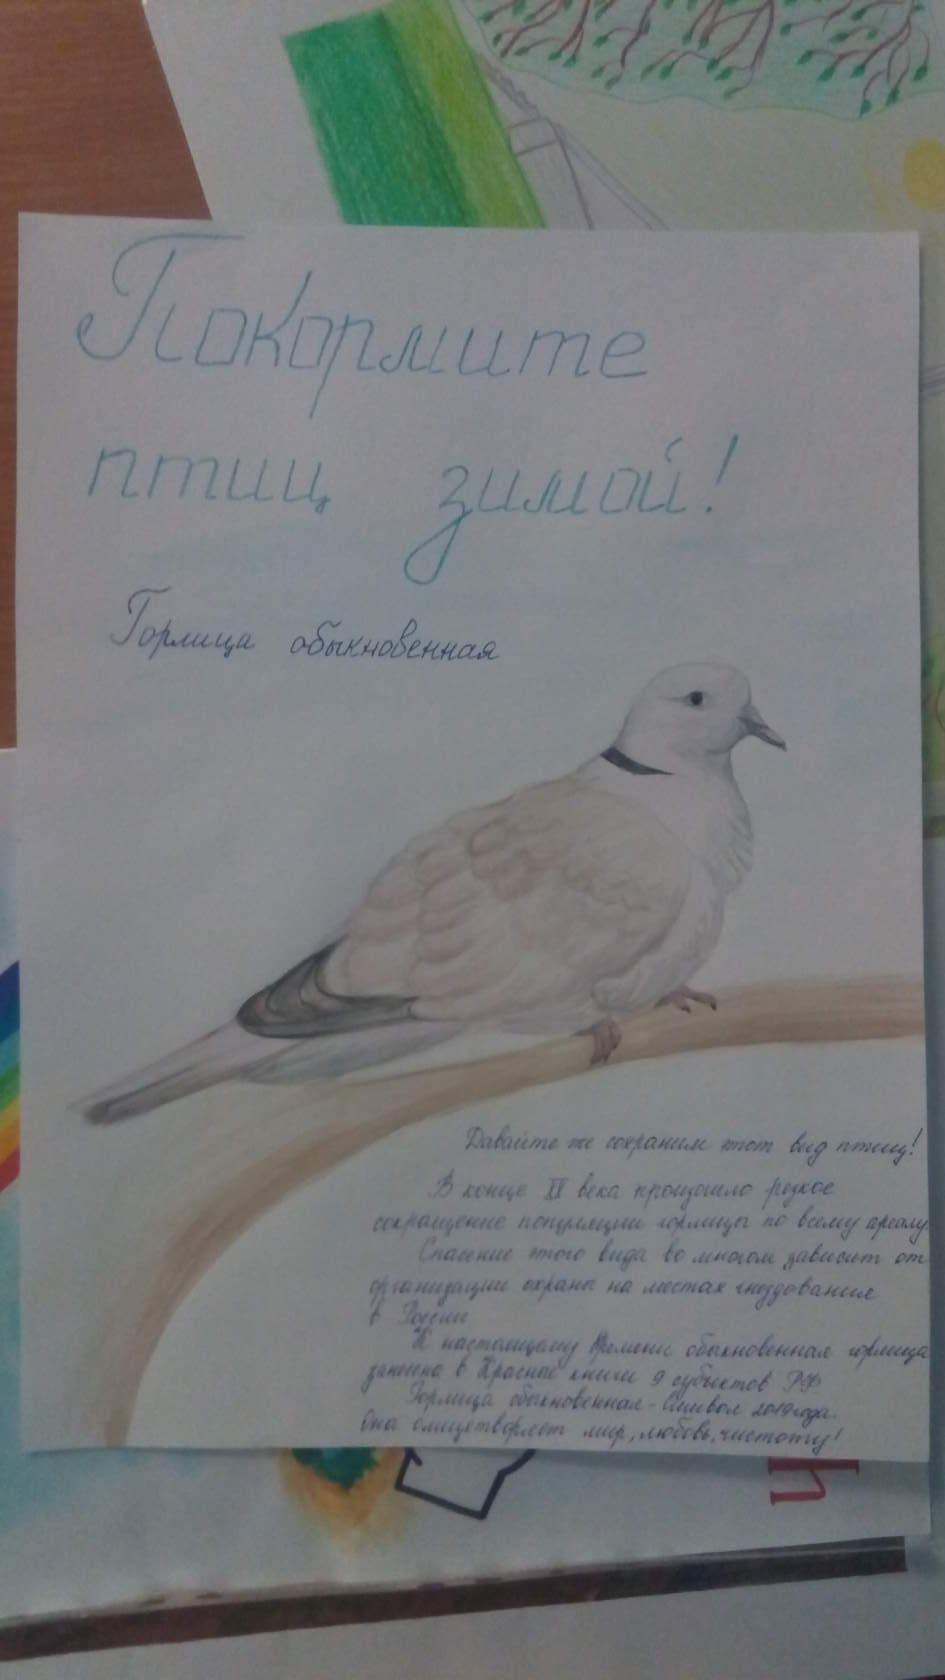 Покормите
птиц зимой!
Горлица обыкновенная
Давайте же сохраним этот вид птиц!
В конце XX века произошло резкое
сокращение популяции горлицы по всему ареалу.
Спасение этого вида во многом зависит от
организации охраны на местах гнездования
в России
К настоящему времени обыкновенная горлица
занесена в Красные книги 9 субъектов РФ
Горлица обыкновенная - Символ 2019 года.
Она олицетворяет мир, любовь, чистоту!